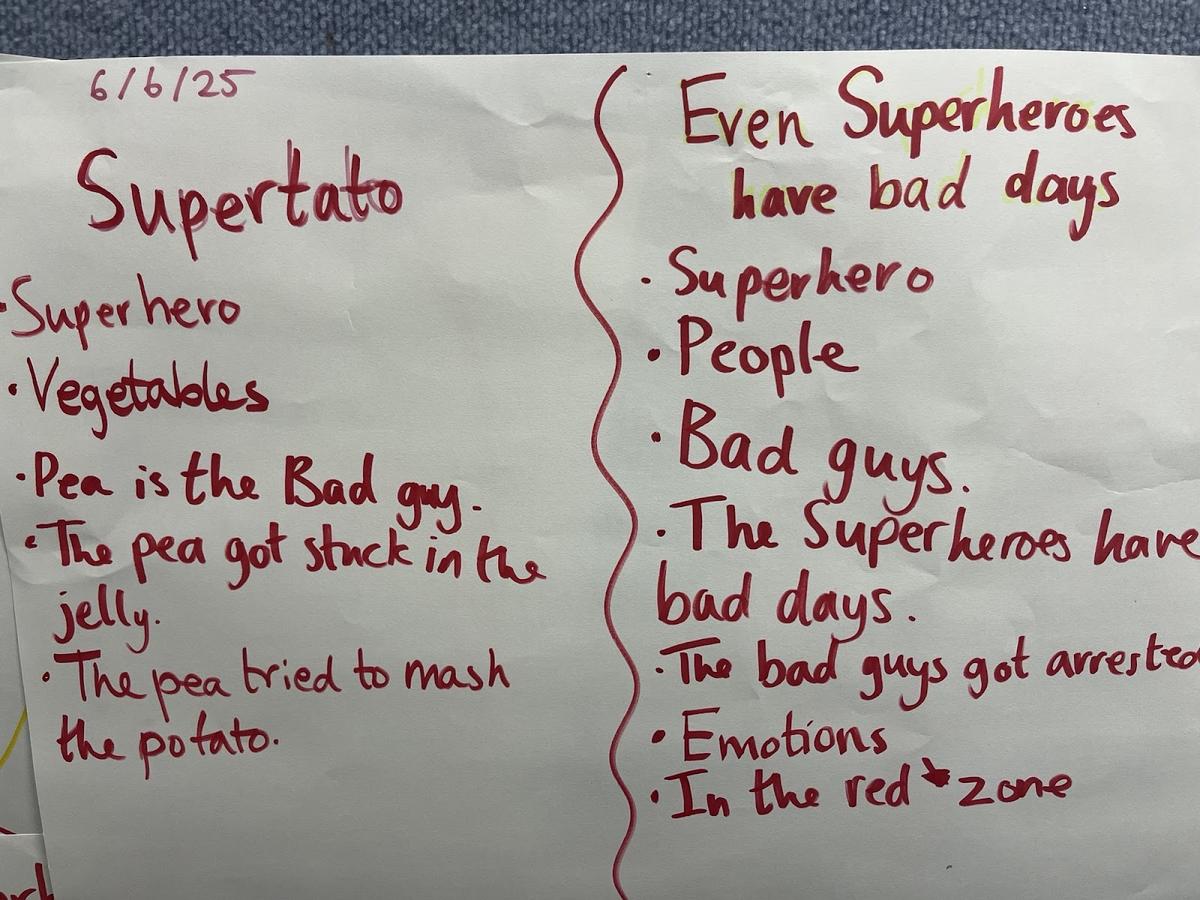 6/6/25
Supertato
·Superhero
·Vegetables
·Pea is the Bad guy.
·The pea got stuck in the
jelly.
·The pea tried to mash
the potato.
Even Superheroes
have bad days
·Superhero
·People
·Bad guys.
·The Superheroes have
bad days.
·The bad guys got arrested
·Emotions
·In the red zone